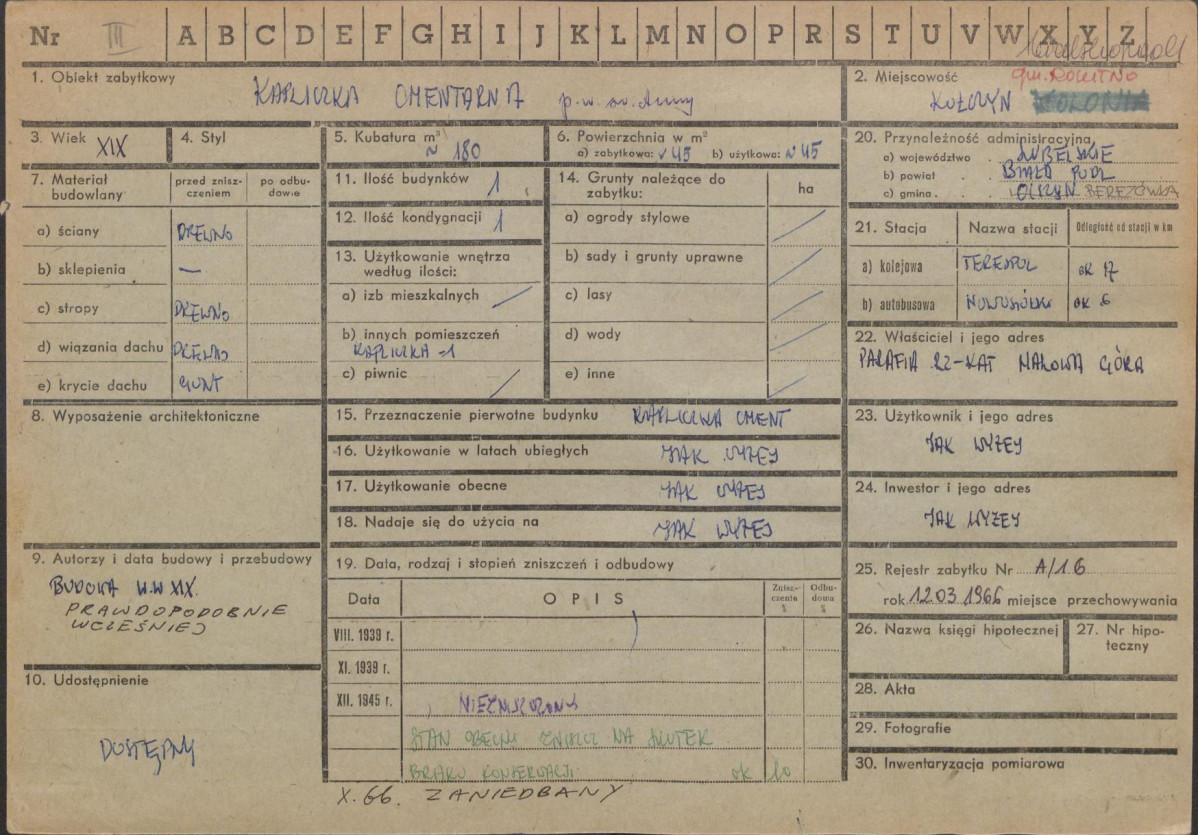 Nr III A B C D E F G H I J K L M N O P R S T U V W X Y Z
1. Obiekt zabytkowy
KAPLICZKA CMENTARNA p.w. św. Anny
2. Miejscowość
gm. ROKITNO
KOŁCZYN KOLONIA
3. Wiek XIX
4. Styl
5. Kubatura m³
~ 180
6. Powierzchnia w m²
a) zabytkowa: ~45 b) użytkowa: ~45
20. Przynależność administracyjna
a) województwo . LUBELSKIE
b) powiat . BIAŁA PODL
c) gmina . OLCZYN BEREZÓWKA
7. Materiał budowlany
przed zniszczeniem
po odbudowie
a) ściany DREWNO
b) sklepienia —
c) stropy DREWNO
d) wiązania dachu DREWNO
e) krycie dachu GONT
11. Ilość budynków 1
12. Ilość kondygnacji 1
13. Użytkowanie wnętrza według ilości:
a) izb mieszkalnych
b) innych pomieszczeń
KAPLICZKA -1
c) piwnic
14. Grunty należące do zabytku:
ha
a) ogrody stylowe
b) sady i grunty uprawne
c) lasy
d) wody
e) inne
21. Stacja
Nazwa stacji
Odległość od stacji w km
a) kolejowa TERESPOL ok 17
b) autobusowa NOWOSIÓŁKI ok 6
22. Właściciel i jego adres
PARAFIA RZ-KAT MALOWA GÓRA
8. Wyposażenie architektoniczne
15. Przeznaczenie pierwotne budynku KAPLICZKA CMENT
16. Użytkowanie w latach ubiegłych JAK WYŻEJ
17. Użytkowanie obecne JAK WYŻEJ
18. Nadaje się do użycia na JAK WYŻEJ
23. Użytkownik i jego adres
JAK WYŻEJ
24. Inwestor i jego adres
JAK WYŻEJ
9. Autorzy i data budowy i przebudowy
BUDOWA W.W XIX.
PRAWDOPODOBNIE
WCZEŚNIEJ
19. Data, rodzaj i stopień zniszczeń i odbudowy
Data
OPIS
Zniszczenia %
Odbudowa %
VIII. 1939 r.
XI. 1939 r.
XII. 1945 r. NIEZNISZCZONY
STAN OBECNY ZNISZCZ NA SKUTEK
BRAKU KONSERWACJI ok 10
X.66. ZANIEDBANY
25. Rejestr zabytku Nr A/16
rok 12.03.1966 miejsce przechowywania
26. Nazwa księgi hipotecznej
27. Nr hipoteczny
10. Udostępnienie
DOSTĘPNY
28. Akta
29. Fotografie
30. Inwentaryzacja pomiarowa